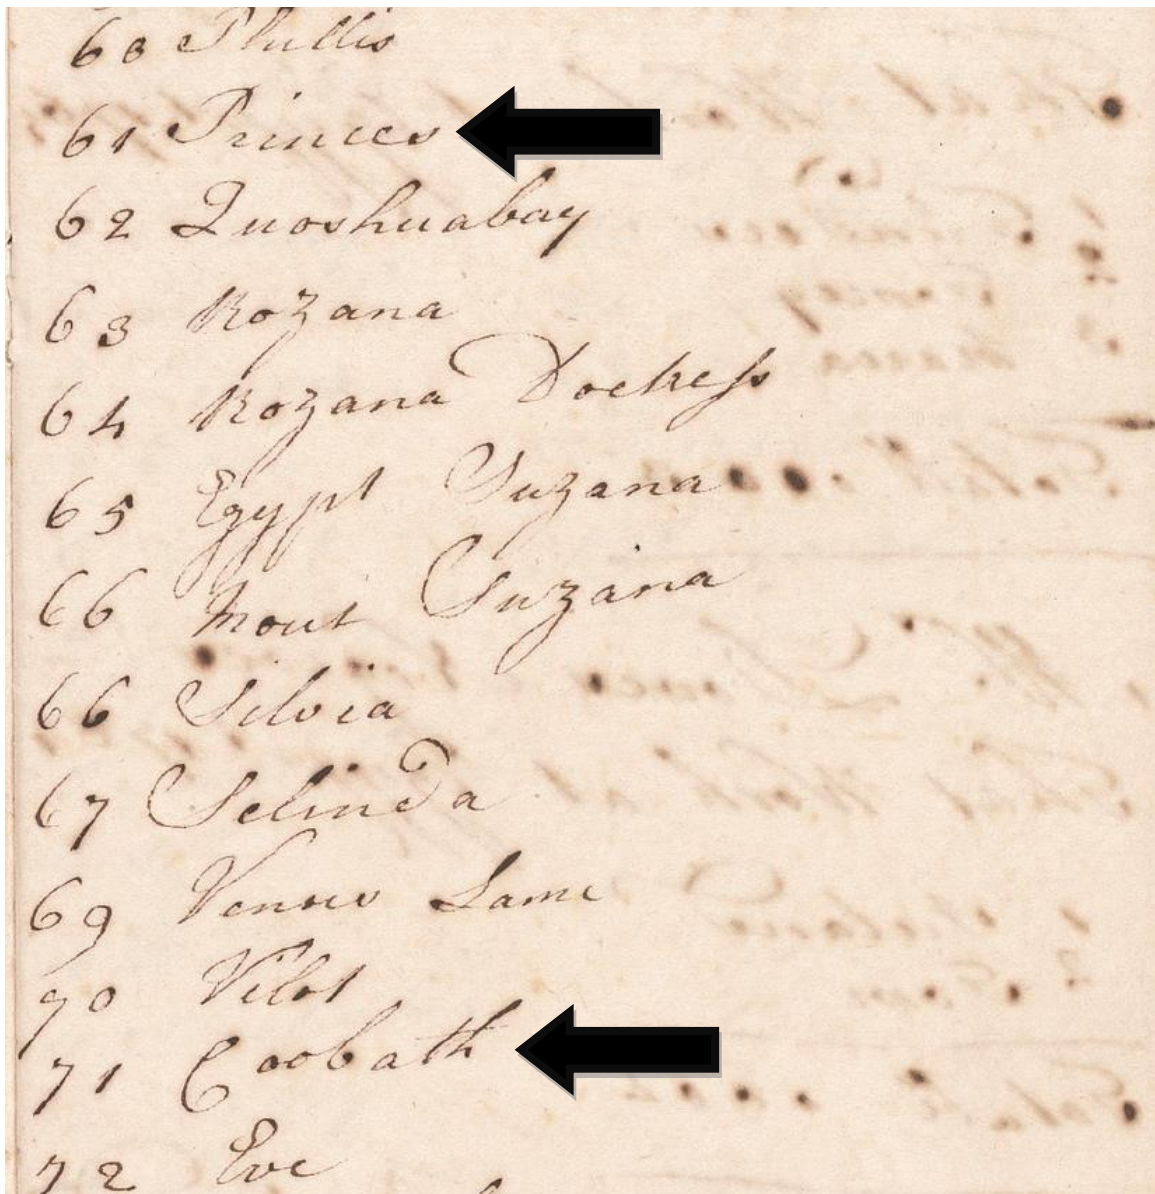 60 Phillis
61 Princes
62 Quoshuabay
63 Rozana
64 Rozana Dockess
65 Egypt Suzana
66 Mout Suzana
66 Silvia
67 Selinda
69 Venus Lame
70 Vilot
71 Coobath
72 Eve